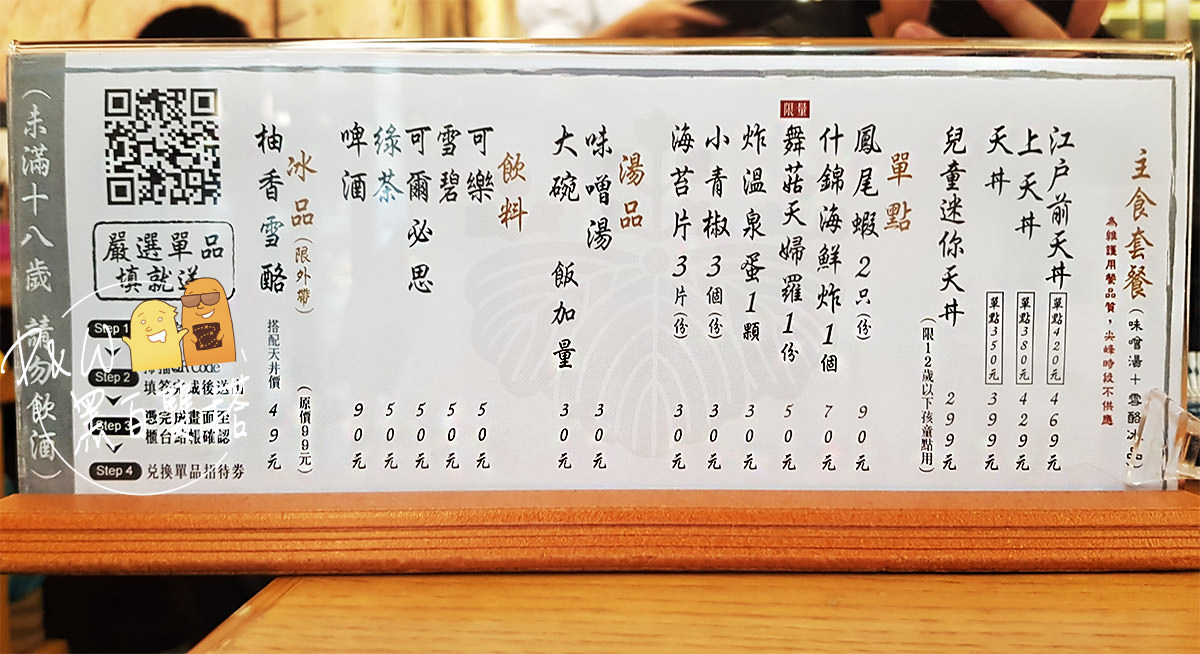 主食套餐(味噌湯＋雪酪冰品)
為維護用餐品質，尖峰時段不供應
江戶前天丼 單點420元 469元
上天丼 單點380元 429元
天丼 單點350元 399元
兒童迷你天丼 299元
(限12歲以下孩童點用)
單點
鳳尾蝦2只(份) 90元
什錦海鮮炸1個 70元
限量
舞菇天婦羅1份 50元
炸溫泉蛋1顆 30元
小青椒3個(份) 30元
海苔片3片(份) 30元
湯品
味噌湯 30元
大碗 飯加量 30元
飲料
可樂 50元
雪碧 50元
可爾必思 50元
綠茶 50元
啤酒 90元
冰品(限外帶) (原價99元)
柚香雪酪 搭配天丼價 49元
嚴選單品
填就送
Step 1
Step 2
填答完成後送出
Step 3 憑完成畫面至
櫃台結帳確認
Step 4 兌換單品招待券
(未滿十八歲 請勿飲酒)
黑白雙搭